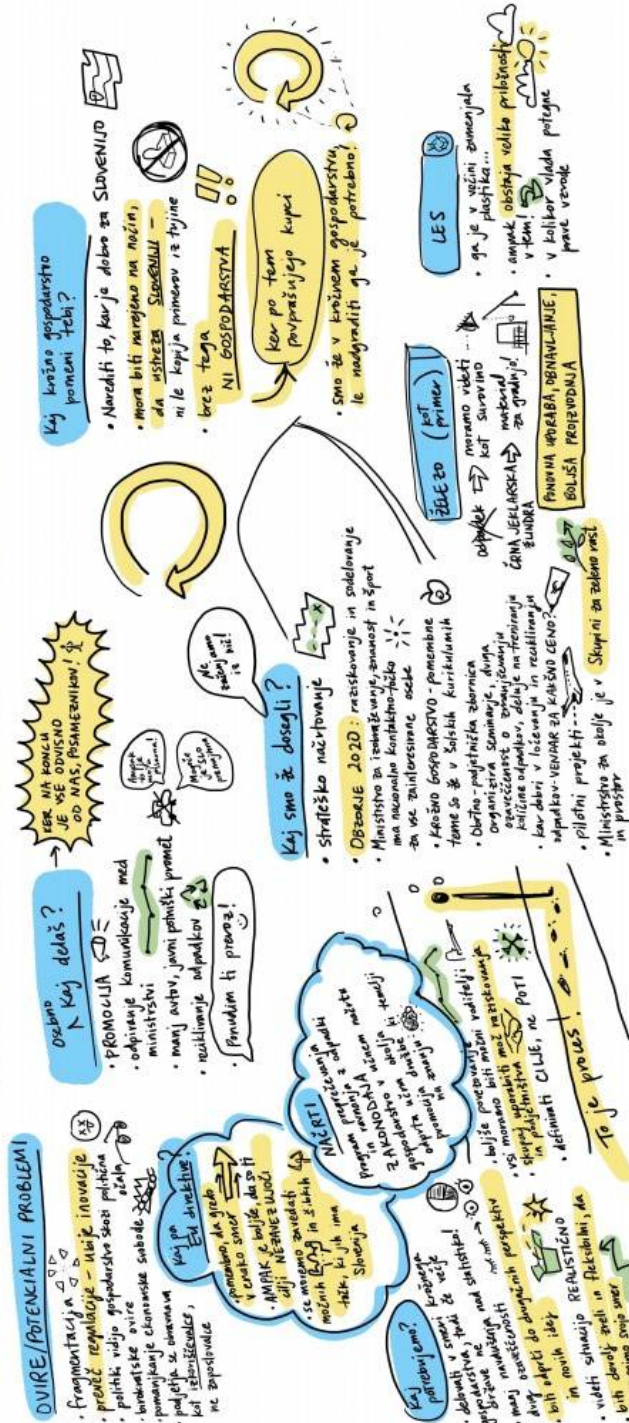 OVIRE/POTENCIALNI PROBLEMI
• fragmentacija
• preveč regulacije - ubije inovacije
• politiki vidijo gospodarstvo skozi politična
očala
• birokratske ovire
• pomanjkanje ekonomske svobode
• podjetja se obravnava
kot izkoriščevalce,
ne zaposlovalce
Kaj pa
EU direktive?
pomembno, da gredo
v enako smer
• AMPAK je boljše, da so ti
cilji NEZAVEZUJOČI
• se moramo zavedati
močnih in šibkih
točk, ki jih ima
Slovenija
Kaj
potrebujemo?
• delovati v smeri krožnega
gospodarstva, tudi če večje
države ne
• dvig navdušenja nad statistiko!
• manj ozaveščenosti
biti odprti do drugačnih perspektiv
in novih idej
• videti situacijo REALISTIČNO
• biti dovolj zreli in fleksibilni, da
svojo smer
Osebno
Kaj delaš?
• PROMOCIJA
• odpiranje komunikacije med
ministrstvi
• manj avtov, javni potniški promet
• recikliranje odpadkov
• Ponudim ti prevoz!
KER NA KONCU
JE VSE ODVISNO
OD NAS, POSAMEZNIKOV!
NAČRTI
program preprečevanja
in ravnanja z odpadki
ZAKONODAJA o učnem načrtu
gospodarstvo in okolja
odprta učeča družba, ki temelji
promocija na znanju
• boljše povezovanje
• vsi moramo biti močni voditelji
• skupaj uporabiti moč raziskovanja
in podjetništva
• definirati CILJE, ne POTI
To je proces!
Ne
začenjamo
iz nič!
Kaj smo že dosegli?
• strateško načrtovanje
• OBZORJE 2020: raziskovanje in sodelovanje
• Ministrstvo za izobraževanje, znanost in šport
ima nacionalno kontaktno točko
za vse zainteresirane osebe
• KROŽNO GOSPODARSTVO - pomembne
teme so že v šolskih kurikulumih
• Obrtno-podjetniška zbornica
organizira seminarje, dviga
ozaveščenost o zmanjševanju
količine odpadkov, deluje na treniranju
• kar dobri v ločevanju in recikliranju
odpadkov - VENDAR ZA KAKŠNO CENO?
• pilotni projekti
• Ministrstvo za okolje je v Skupini za zeleno rast
in prostor
Kaj krožno gospodarstvo
pomeni tebi?
• Narediti to, kar je dobro za SLOVENIJO
• mora biti narejeno na način,
da ustreza SLOVENIJI -
ni le kopija primerov iz tujine
• brez tega
NI GOSPODARSTVA
!!
ker po tem
povprašujejo kupci
• smo že v krožnem gospodarstvu,
le nadgraditi ga je potrebno!
ŽELEZO (kot
primer)
odpadek moramo videti
kot surovino
ČRNA JEKLARSKA material
ŽLINDRA za gradnjo!
PONOVNA UPORABA, OBNAVLJANJE,
BOLJŠA PROIZVODNJA
LES
• ga je v večini zamenjala
plastika...
• ampak obstaja veliko priložnosti
v tem!
• v kolikor vlada potegne
prave vzvode